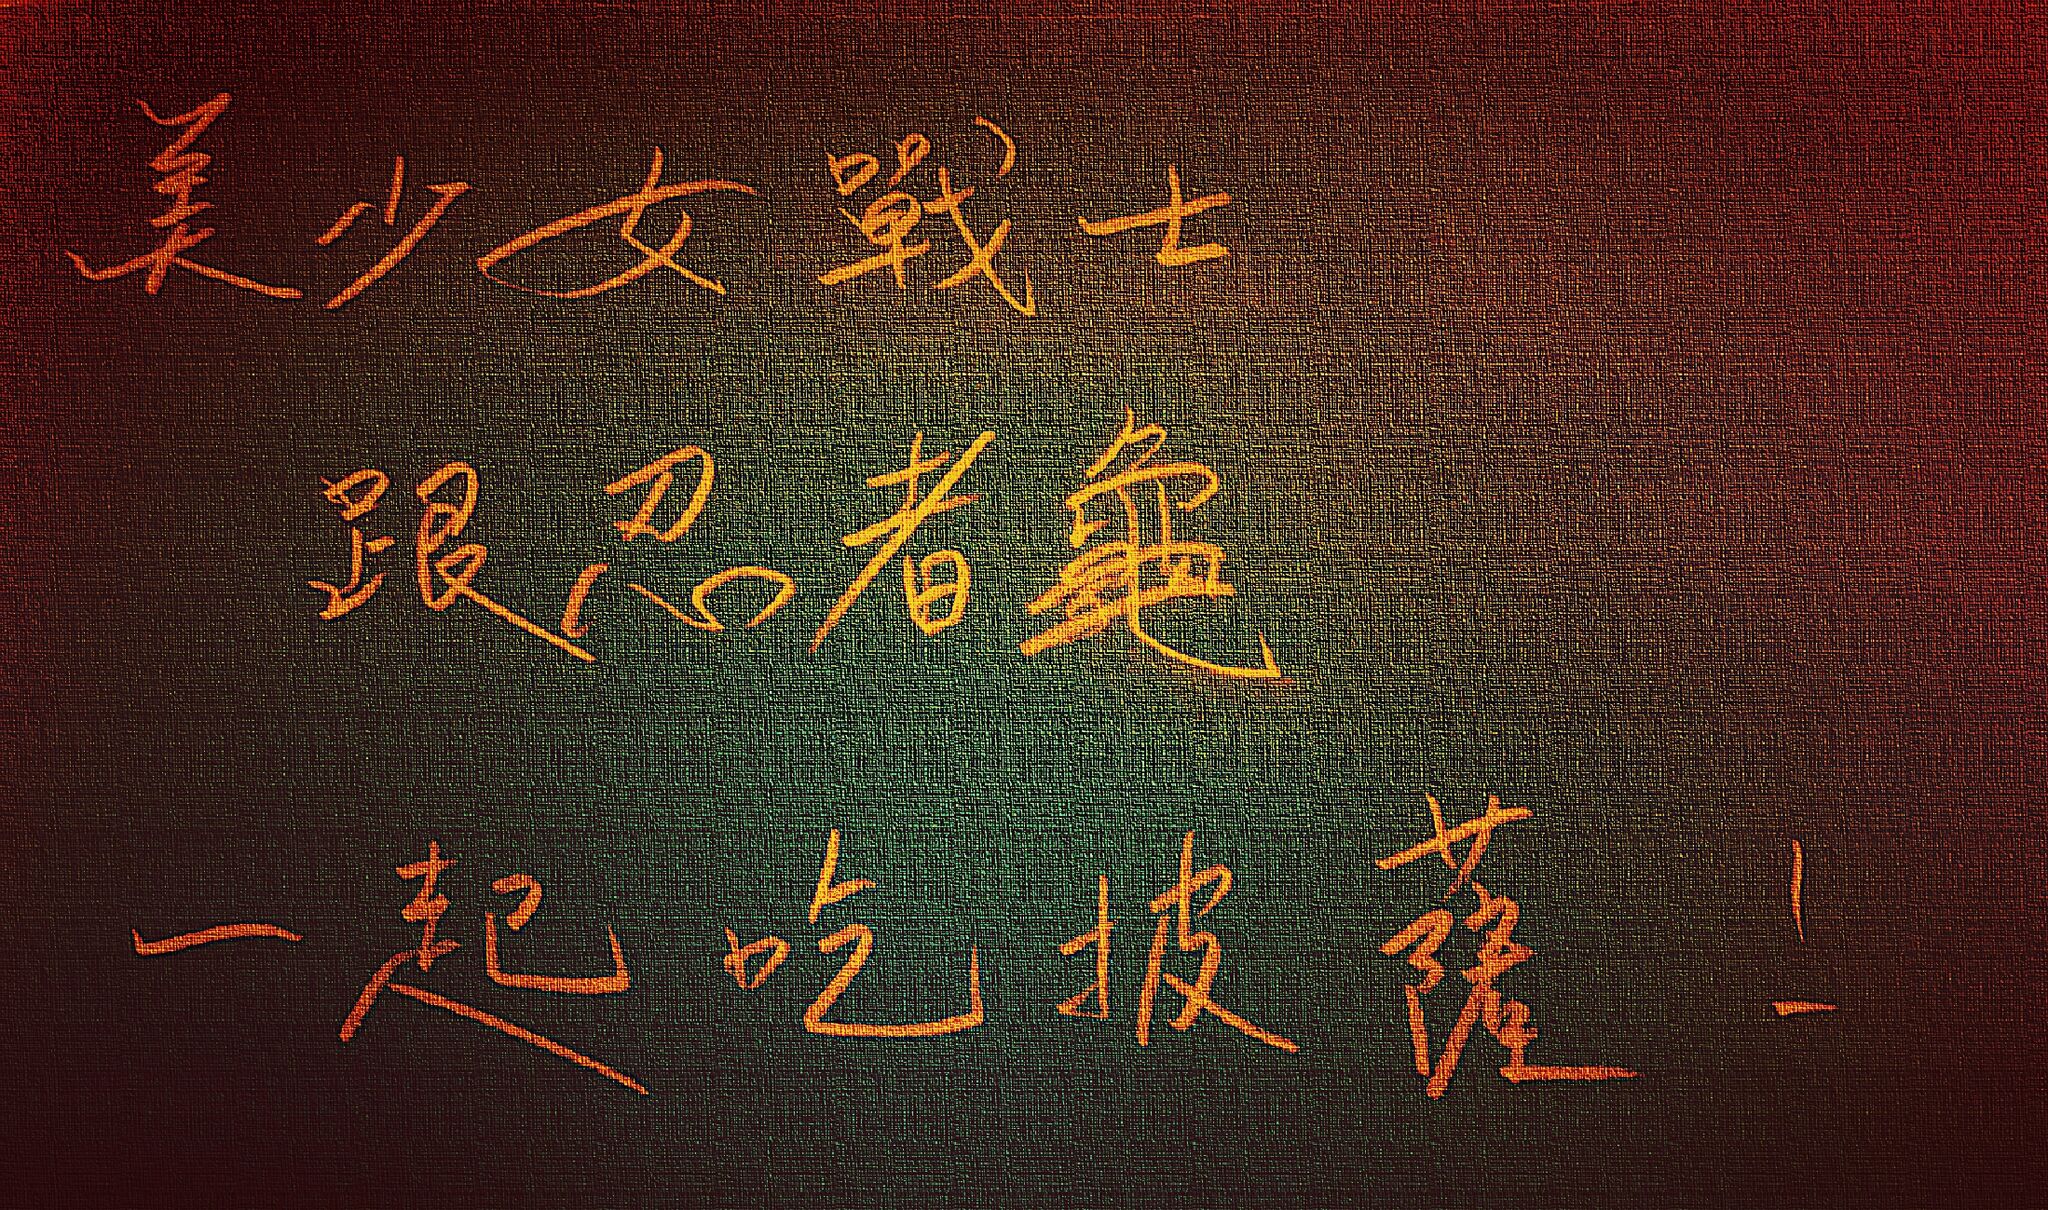 美少女戰士
跟忍者龜
一起吃披薩！